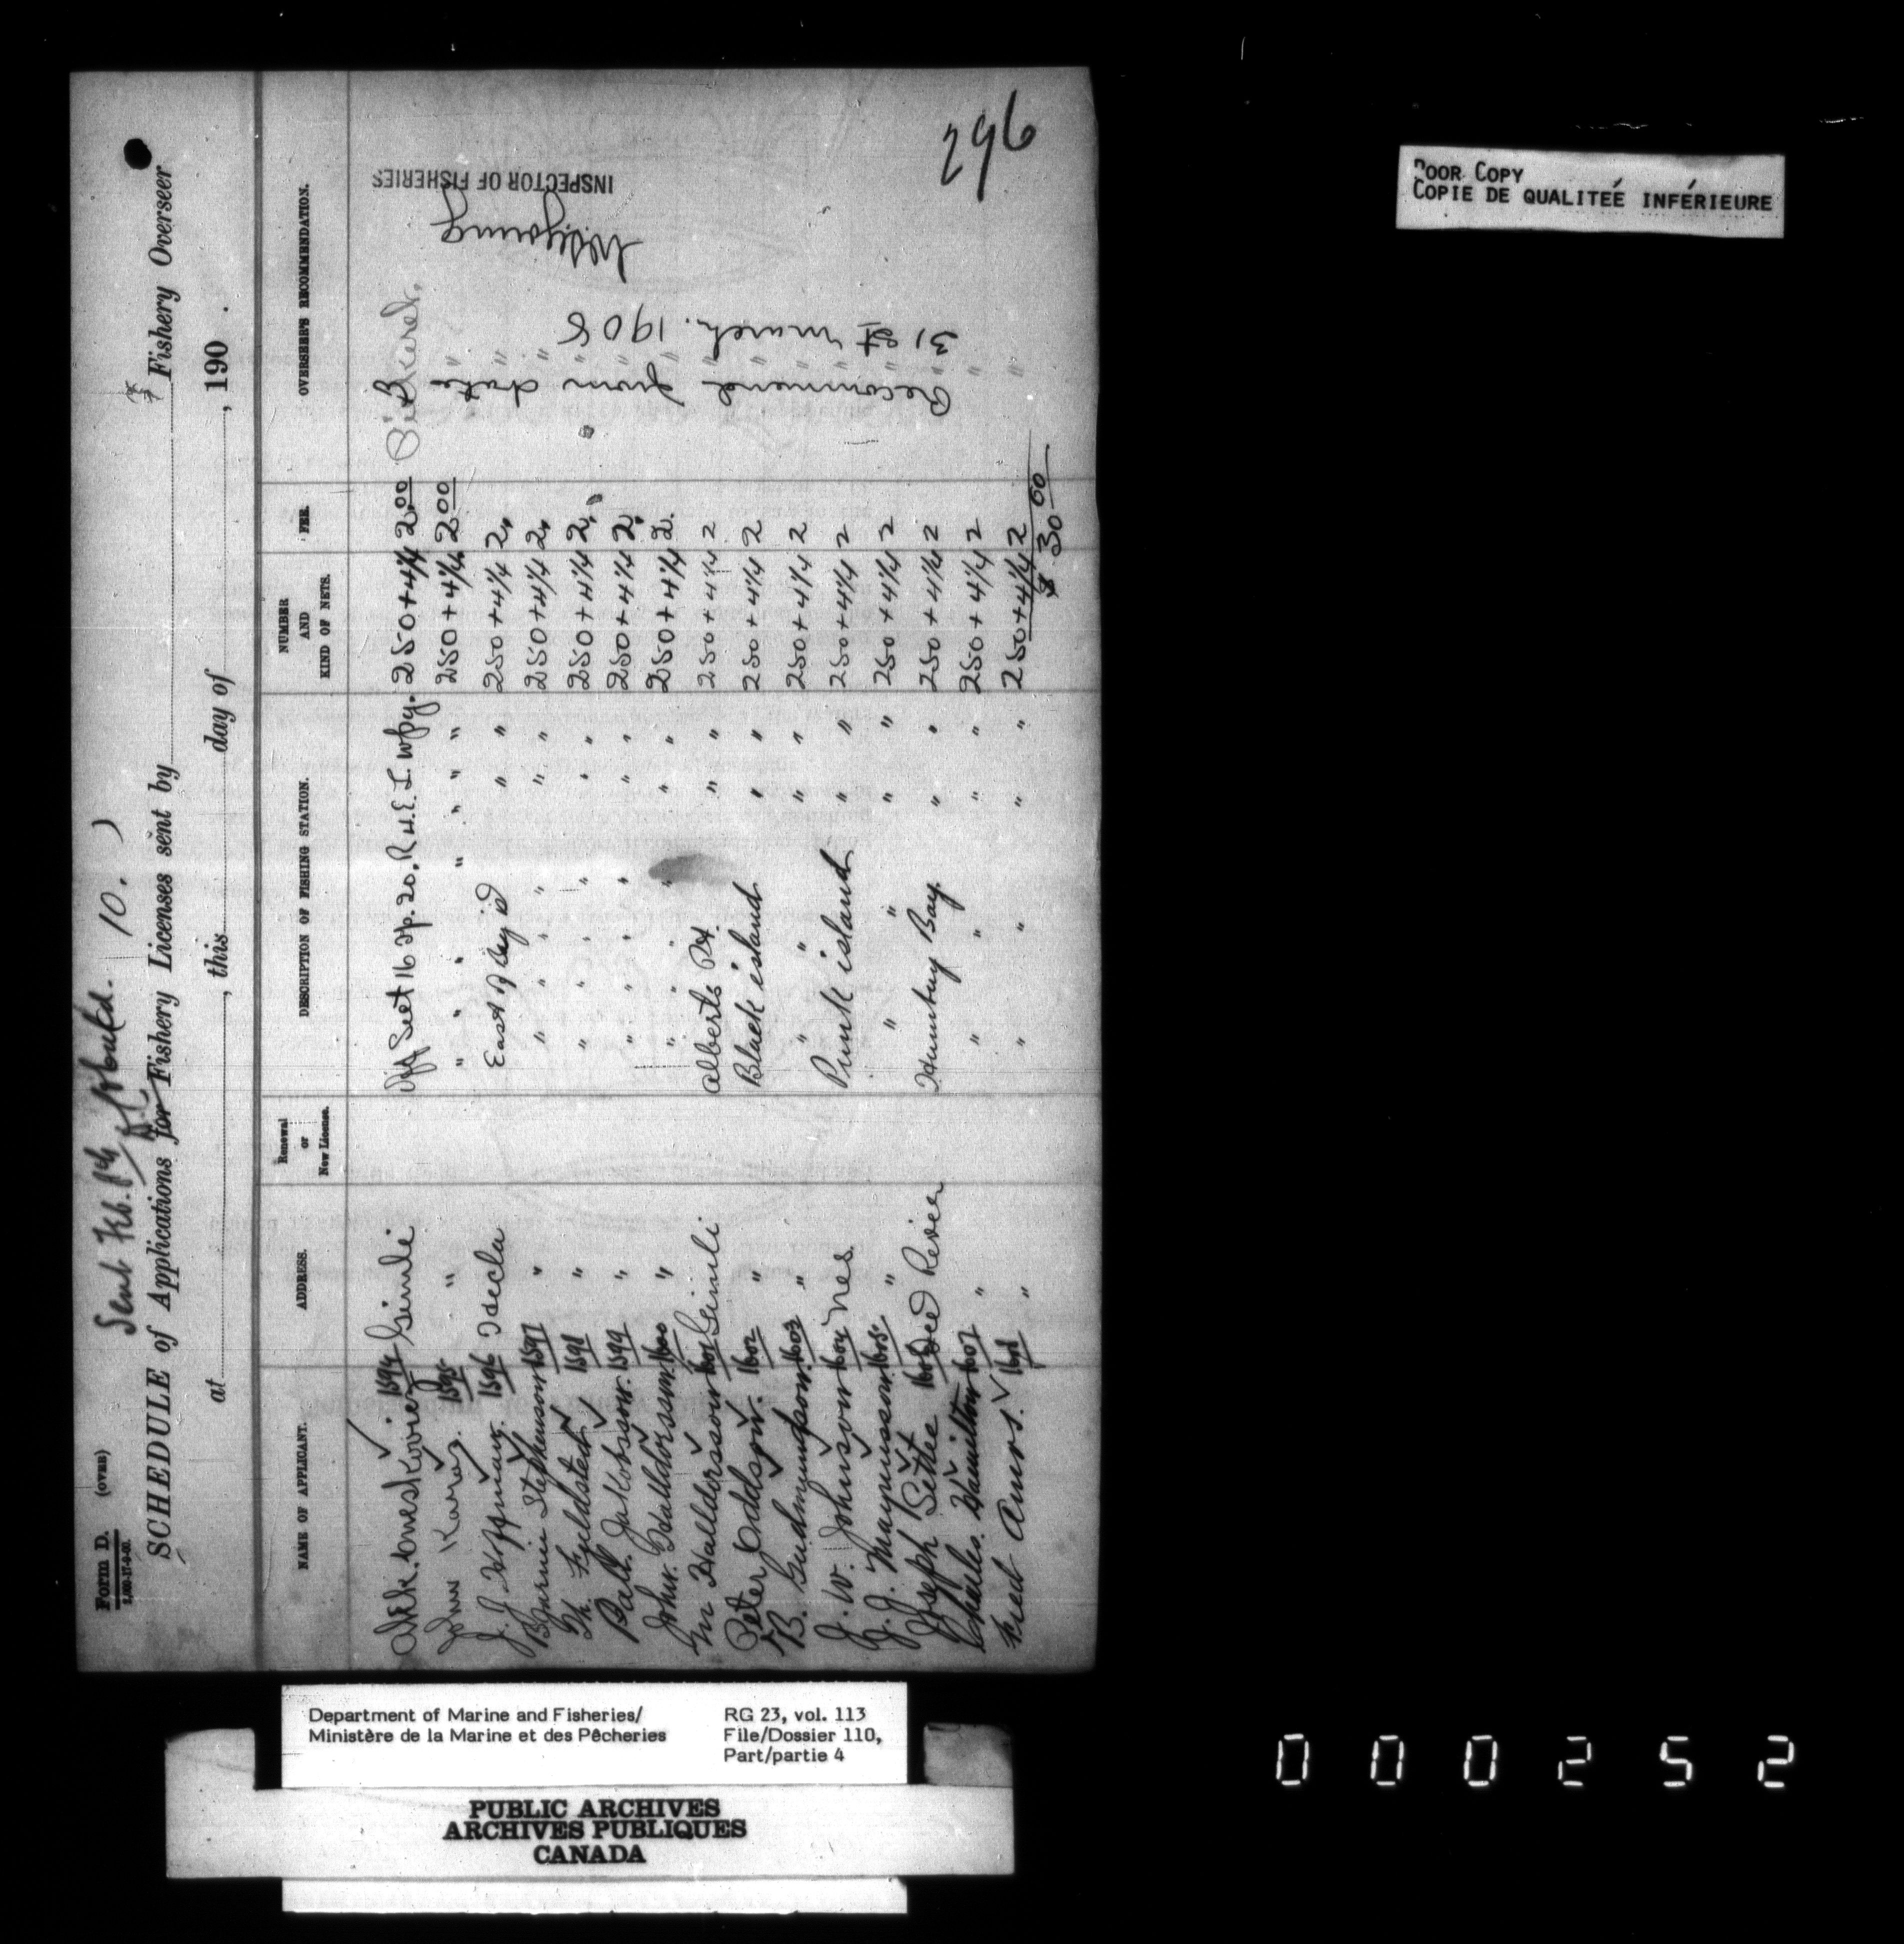 Form D. (OVER)
Sent Feb. 10.
SCHEDULE of Applications for Fishery Licenses sent by Fishery Overseer
at , this day of , 190 .
NAME OF APPLICANT. ADDRESS. Renewal or New License. DESCRIPTION OF FISHING STATION. NUMBER AND KIND OF NETS. FEE. OVERSEER'S RECOMMENDATION.
1594 Gimli Off Sect 16 Tp. 20. R 4. E. L. Wpg. 250 + 4 1/4 2.00 Pickerel.
John 1595 " " " " " " " " 250 + 4 1/4 2 00 "
J. J. Hoffman. 1596 Hecla East of Big Id " " 250 + 4 1/4 2 " "
Bjarni Stephenson 1597 " " " " " " " 250 + 4 1/4 2 " "
Th. Fjeldsted 1598 " " " " " " " 250 + 4 1/4 2 " "
Pall. Jakobsson. 1599 " " " " " " " 250 + 4 1/4 2 " "
John. Halldorsson. 1600 " " " " " " " 250 + 4 1/4 2 "
Halldorsson 1601 Gimli Alberts Pt. " " 250 + 4 1/4 2 "
Peter Oddson. 1602 " Black island " " 250 + 4 1/4 2 "
B. Gudmundson. 1603 " " " " " 250 + 4 1/4 2 "
J. W. Johnson 1604 Nes Punk island " " 250 + 4 1/4 2 "
J. J. Magnusson. 1605 " " " " " 250 + 4 1/4 2 "
Joseph Settee 1606 Red River Humbug Bay. " " 250 + 4 1/4 2 "
Charles. Hamilton 1607 " " " " " 250 + 4 1/4 2 "
Fred 1608 " " " " " 250 + 4 1/4 2 "
$ 30 00
Recommend from date
31st March. 1908
WSYoung
INSPECTOR OF FISHERIES
296
POOR COPY
COPIE DE QUALITEÉ INFÉRIEURE
Department of Marine and Fisheries/
Ministère de la Marine et des Pêcheries
RG 23, vol. 113
File/Dossier 110,
Part/partie 4
PUBLIC ARCHIVES
ARCHIVES PUBLIQUES
CANADA
000252